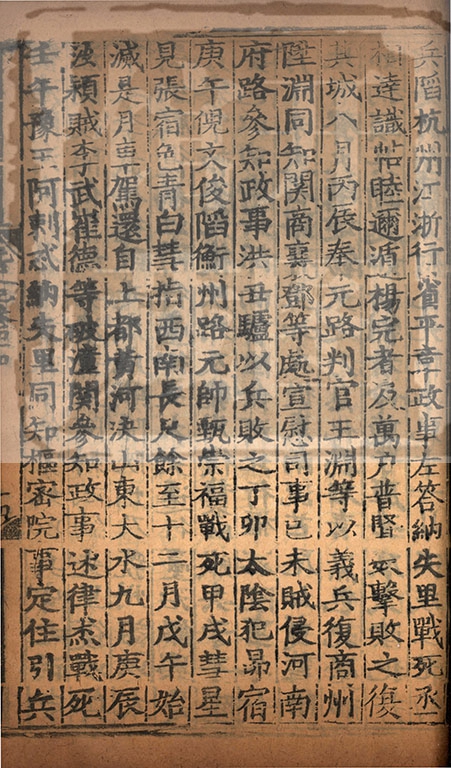 兵䧟杭州江浙行省平章政事左答納失里戰死丞
相達識帖睦邇遁楊完者及萬户普賢奴擊敗之復
其城八月丙辰奉元路判官王淵等以義兵復商州
陞淵同知關商襄鄧等處宣慰司事己未賊侵河南
府路參知政事洪丑驢以兵敗之丁卯太陰犯昴宿
庚午倪文俊䧟衡州路元帥甄崇福戰死甲戌彗星
見張宿色青白彗指西南長尺餘至十二月戊午始
滅是月車駕還自上都黄河决山東大水九月庚辰
汝潁賊李武崔德等破潼関參知政事述律杰戰死
壬午豫王阿剌忒納失里同知樞密院事定住引兵